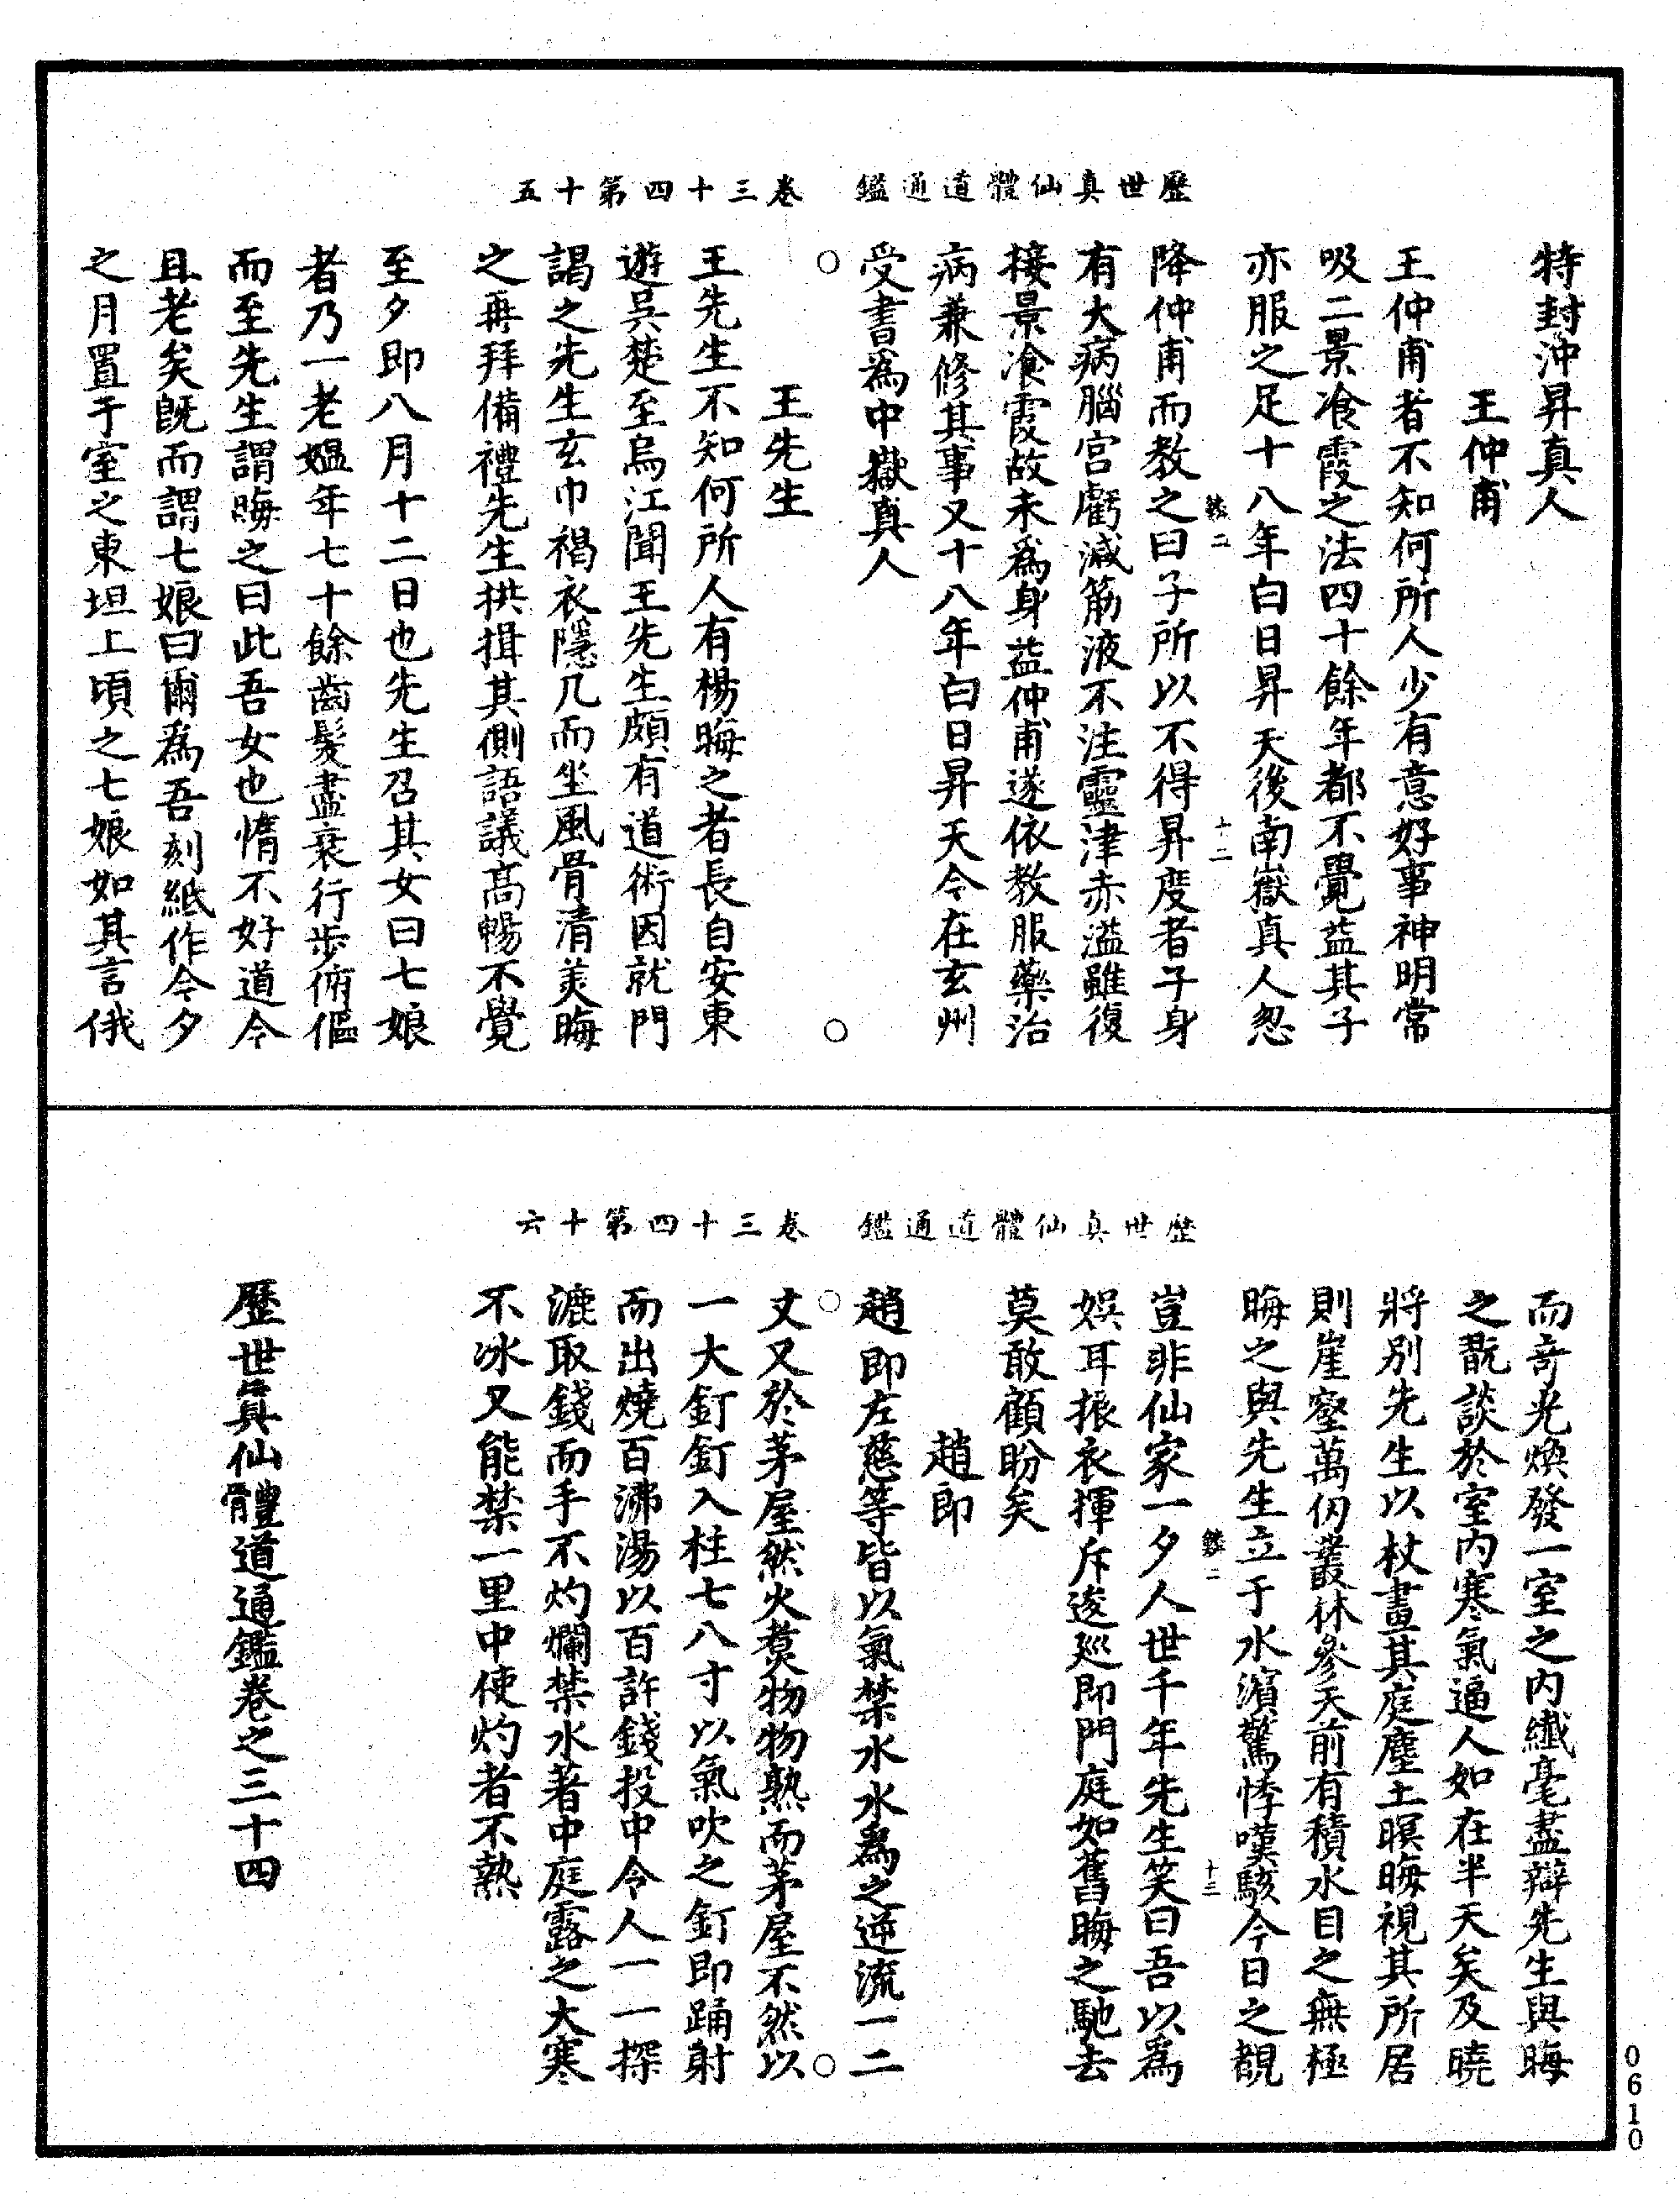 歷世真仙體道通鑑　卷三十四第十五
特封沖昇真人
王仲甫
王仲甫者不知何所人少有意好事神明常
吸二景飡霞之法四十餘年都不覺益其子
亦服之足十八年白日昇天後南嶽真人忽
降仲甫而教之曰子所以不得昇度者子身
有大病腦宮虧減筋液不注靈津赤溢雖復
接景飡霞故未為身益仲甫遂依教服藥治
病兼修其事又十八年白日昇天今在玄州
受書為中嶽真人
王先生
王先生不知何所人有楊晦之者長自安東
遊吳楚至烏江聞王先生頗有道術因就門
謁之先生玄巾褐衣隱几而坐風骨清美晦
之再拜備禮先生拱揖其側語議高暢不覺
至夕即八月十二日也先生召其女曰七娘
者乃一老媼年七十餘齒髮盡衰行步俯傴
而至先生謂晦之曰此吾女也惰不好道今
且老矣既而謂七娘曰爾為吾刻紙作今夕
之月置于室之東垣上頃之七娘如其言俄
歷世真仙體道通鑑　卷三十四第十六
而奇光煥發一室之內纖毫盡辯先生與晦
之翫談於室內寒氣逼人如在半天矣及曉
將別先生以杖畫其庭塵土暝晦視其所居
則崖壑萬仞叢林參天前有積水目之無極
晦之與先生立于水濱驚悸嘆駭今日之覩
豈非仙家一夕人世千年先生笑曰吾以為
娛耳振衣揮斥逡廵即門庭如舊晦之馳去
莫敢顧盼矣
趙即
趙即左慈等皆以氣禁水水為之逆流一二
丈又於茅屋然火煑物物熟而茅屋不然以
一大釘釘入柱七八寸以氣吹之釘即踊射
而出燒百沸湯以百許錢投中令人一一探
漉取錢而手不灼爛禁水著中庭露之大寒
不冰又能禁一里中使灼者不熱
歷世真仙體道通鑑卷之三十四
0610